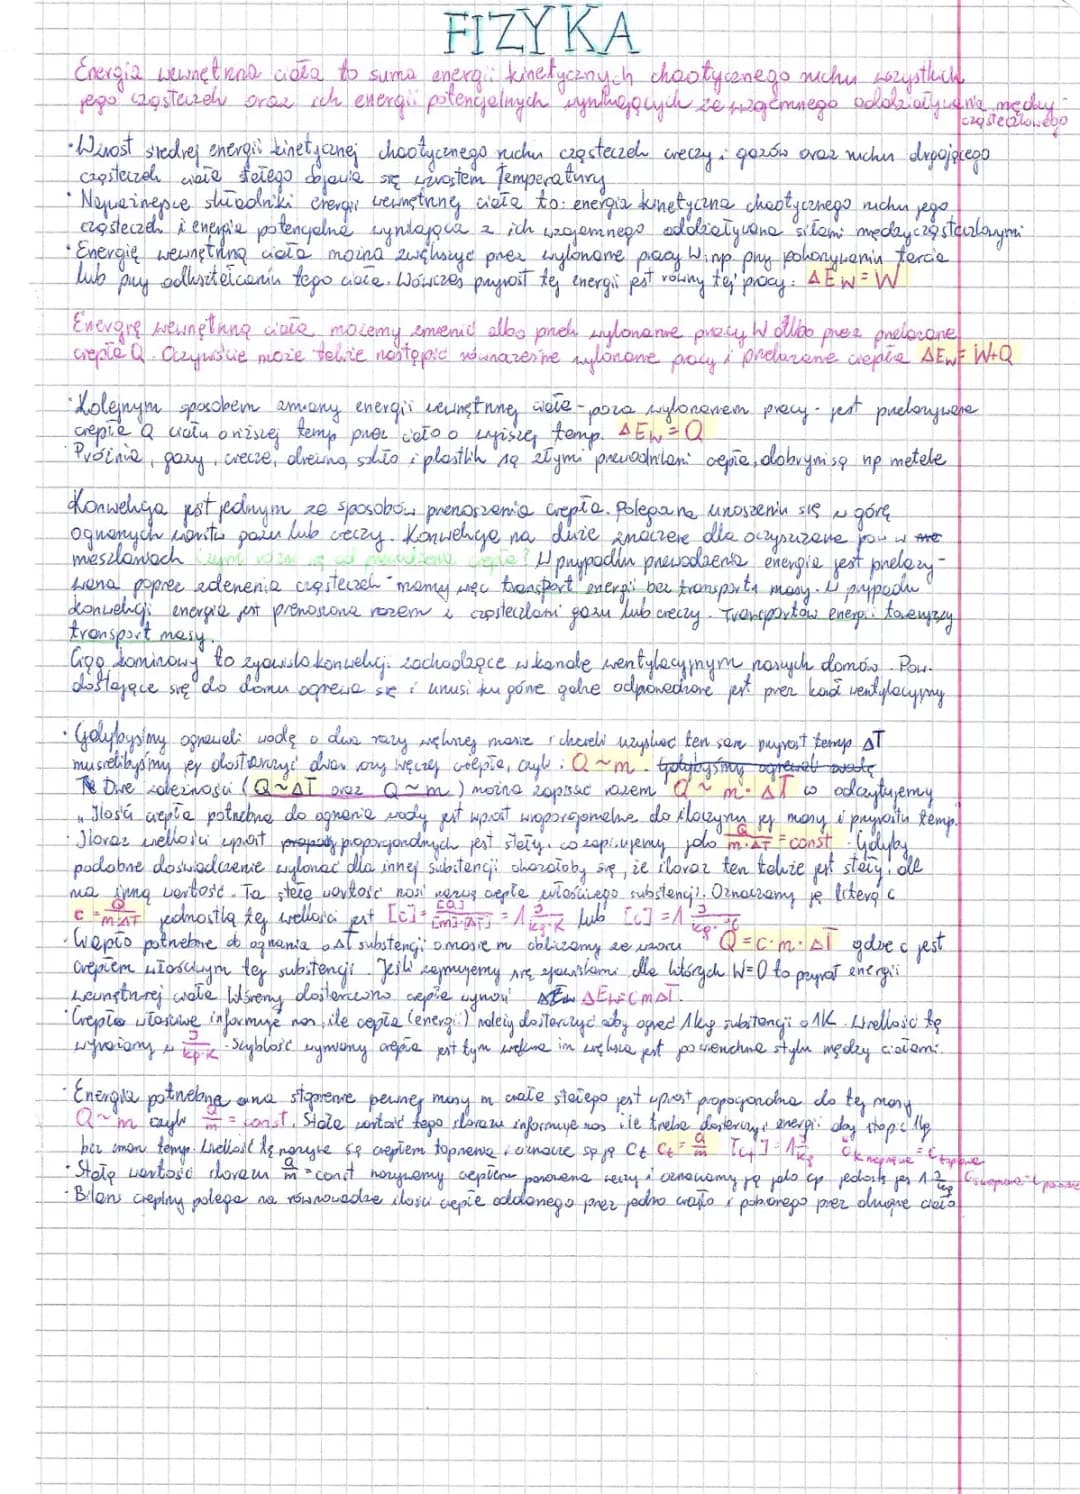 FIZYKA
Energia wewnętrzna ciała to suma energii kinetycznych chaotycznego ruchu wszystkich
jego cząsteczek oraz ich energii potencjalnych wynikających ze wzajemnego oddziaływania między-
cząsteczkowego
·Wzrost średniej energii kinetycznej chaotycznego ruchu cząsteczek cieczy i gazów oraz ruchu drgającego
cząsteczek ciała stałego objawia się wzrostem temperatury
· Najważniejsze składniki energii wewnętrznej ciała to: energia kinetyczna chaotycznego ruchu jego
cząsteczek i energia potencjalna wynikająca z ich wzajemnego oddziaływana siłami międzycząsteczkowymi
· Energię wewnętrzną ciała można zwiększyć przez wykonanie pracy W, np. przy pokonywaniu tarcia
lub przy odkształcaniu tego ciała. Wówczas przyrost tej energii jest równy tej pracy: ΔEw = W
Energię wewnętrzną ciała możemy zmienić albo przez wykonanie pracy W albo przez przekazanie
ciepła Q. Oczywiście może także nastąpić równoczesne wykonanie pracy i przekazanie ciepła ΔEw = W+Q
·Kolejnym sposobem zmiany energii wewnętrznej ciała - poza wykonaniem pracy - jest przekazywanie
ciepła Q ciału o niższej temp przez ciało o wyższej temp. ΔEw = Q
· Próżnia, gazy, ciecze, drewno, szkło i plastik są złymi przewodnikami ciepła, dobrymi są np metale
Konwekcja jest jednym ze sposobów przenoszenia ciepła. Polega na unoszeniu się w górę
ogrzanych warstw gazu lub cieczy. Konwekcja na duże znaczenie dla oczyszczania pow w
mieszkaniach Czym różni się od przewodzenia ciepła? W przypadku przewodzenia energia jest przekazy-
wana poprzez zderzenia cząsteczek - mamy więc transport energii bez transportu masy. W przypadku
konwekcji energia jest przenoszona razem z cząsteczkami gazu lub cieczy. Transportow energii towarzyszy
transport masy.
Ciąg kominowy to zjawisko konwekcji zachodzące w kanale wentylacyjnym naszych domów. Pow.
dostające się do domu ogrzewa się i unosi ku górze gdzie odprowadzone jest przez kanał wentylacyjny
· Gdybyśmy ogrzewali wodę o dwa razy większej masie i chcieli uzyskać ten sam przyrost temp ΔT
musielibyśmy jej dostarczyć dwa razy więcej ciepła, czyli: Q ~ m. Gdybyśmy ogrzewali wodę
Dwie zależności (Q ~ ΔT oraz Q ~ m) można zapisać razem Q ~ m · ΔT co odczytujemy
„Ilość ciepła potrzebna do ogrzania wody jest wprost proporcjonalna do iloczynu jej masy i przyrostu temp.
· Iloraz wielkości wprost proporcjonalnych jest stały, co zapisujemy jako Q/m·ΔT = const. Gdyby
podobne doświadczenie wykonać dla innej substancji okazałoby się, że iloraz ten także jest stały, ale
ma inną wartość. Ta stała wartość nosi nazwę ciepła właściwego substancji. Oznaczamy ją literą c
c = Q/m·ΔT jednostką tej wielkości jest [c] = [Q]/[m]·[ΔT] = 1 J/kg·K lub [c] = 1 J/kg·°C
· Ciepło potrzebne do ogrzania o ΔT substancji o masie m obliczamy ze wzoru Q = c·m·ΔT gdzie c jest
ciepłem właściwym tej substancji. Jeśli zajmujemy się zjawiskami, dla których W=0 to przyrost energii
wewnętrznej ciała któremu dostarczono ciepła wynosi ΔEw = cmΔT.
· Ciepło właściwe informuje nas, ile ciepła (energii) należy dostarczyć aby ogrzać 1kg substancji o 1K. Wielkość tę
wyrażamy w J/kg·K - Szybkość wymiany ciepła jest tym większa im większa jest powierzchnia styku między ciałami.
· Energia potrzebna na stopienie pewnej masy m ciała stałego jest wprost proporcjonalna do tej masy
Q ~ m czyli Q/m = const. Stała wartość tego ilorazu informuje nas ile trzeba dostarczyć energii aby stopić 1kg
bez zmian temp. Wielkość tę nazywa się ciepłem topnienia i oznacza się ją Ct Ct = Q/m [Ct] = 1 J/kg Ckrzepnięcia = Ctopnienia
· Stałą wartość ilorazu Q/m = const nazywamy ciepłem parowania cieczy i oznaczamy ją jako cp jednostk jej 1 J/kg Cskraplania = C parowania
· Bilans cieplny polega na równowadze ilości ciepła oddanego przez jedno ciało i pobranego przez drugie ciało